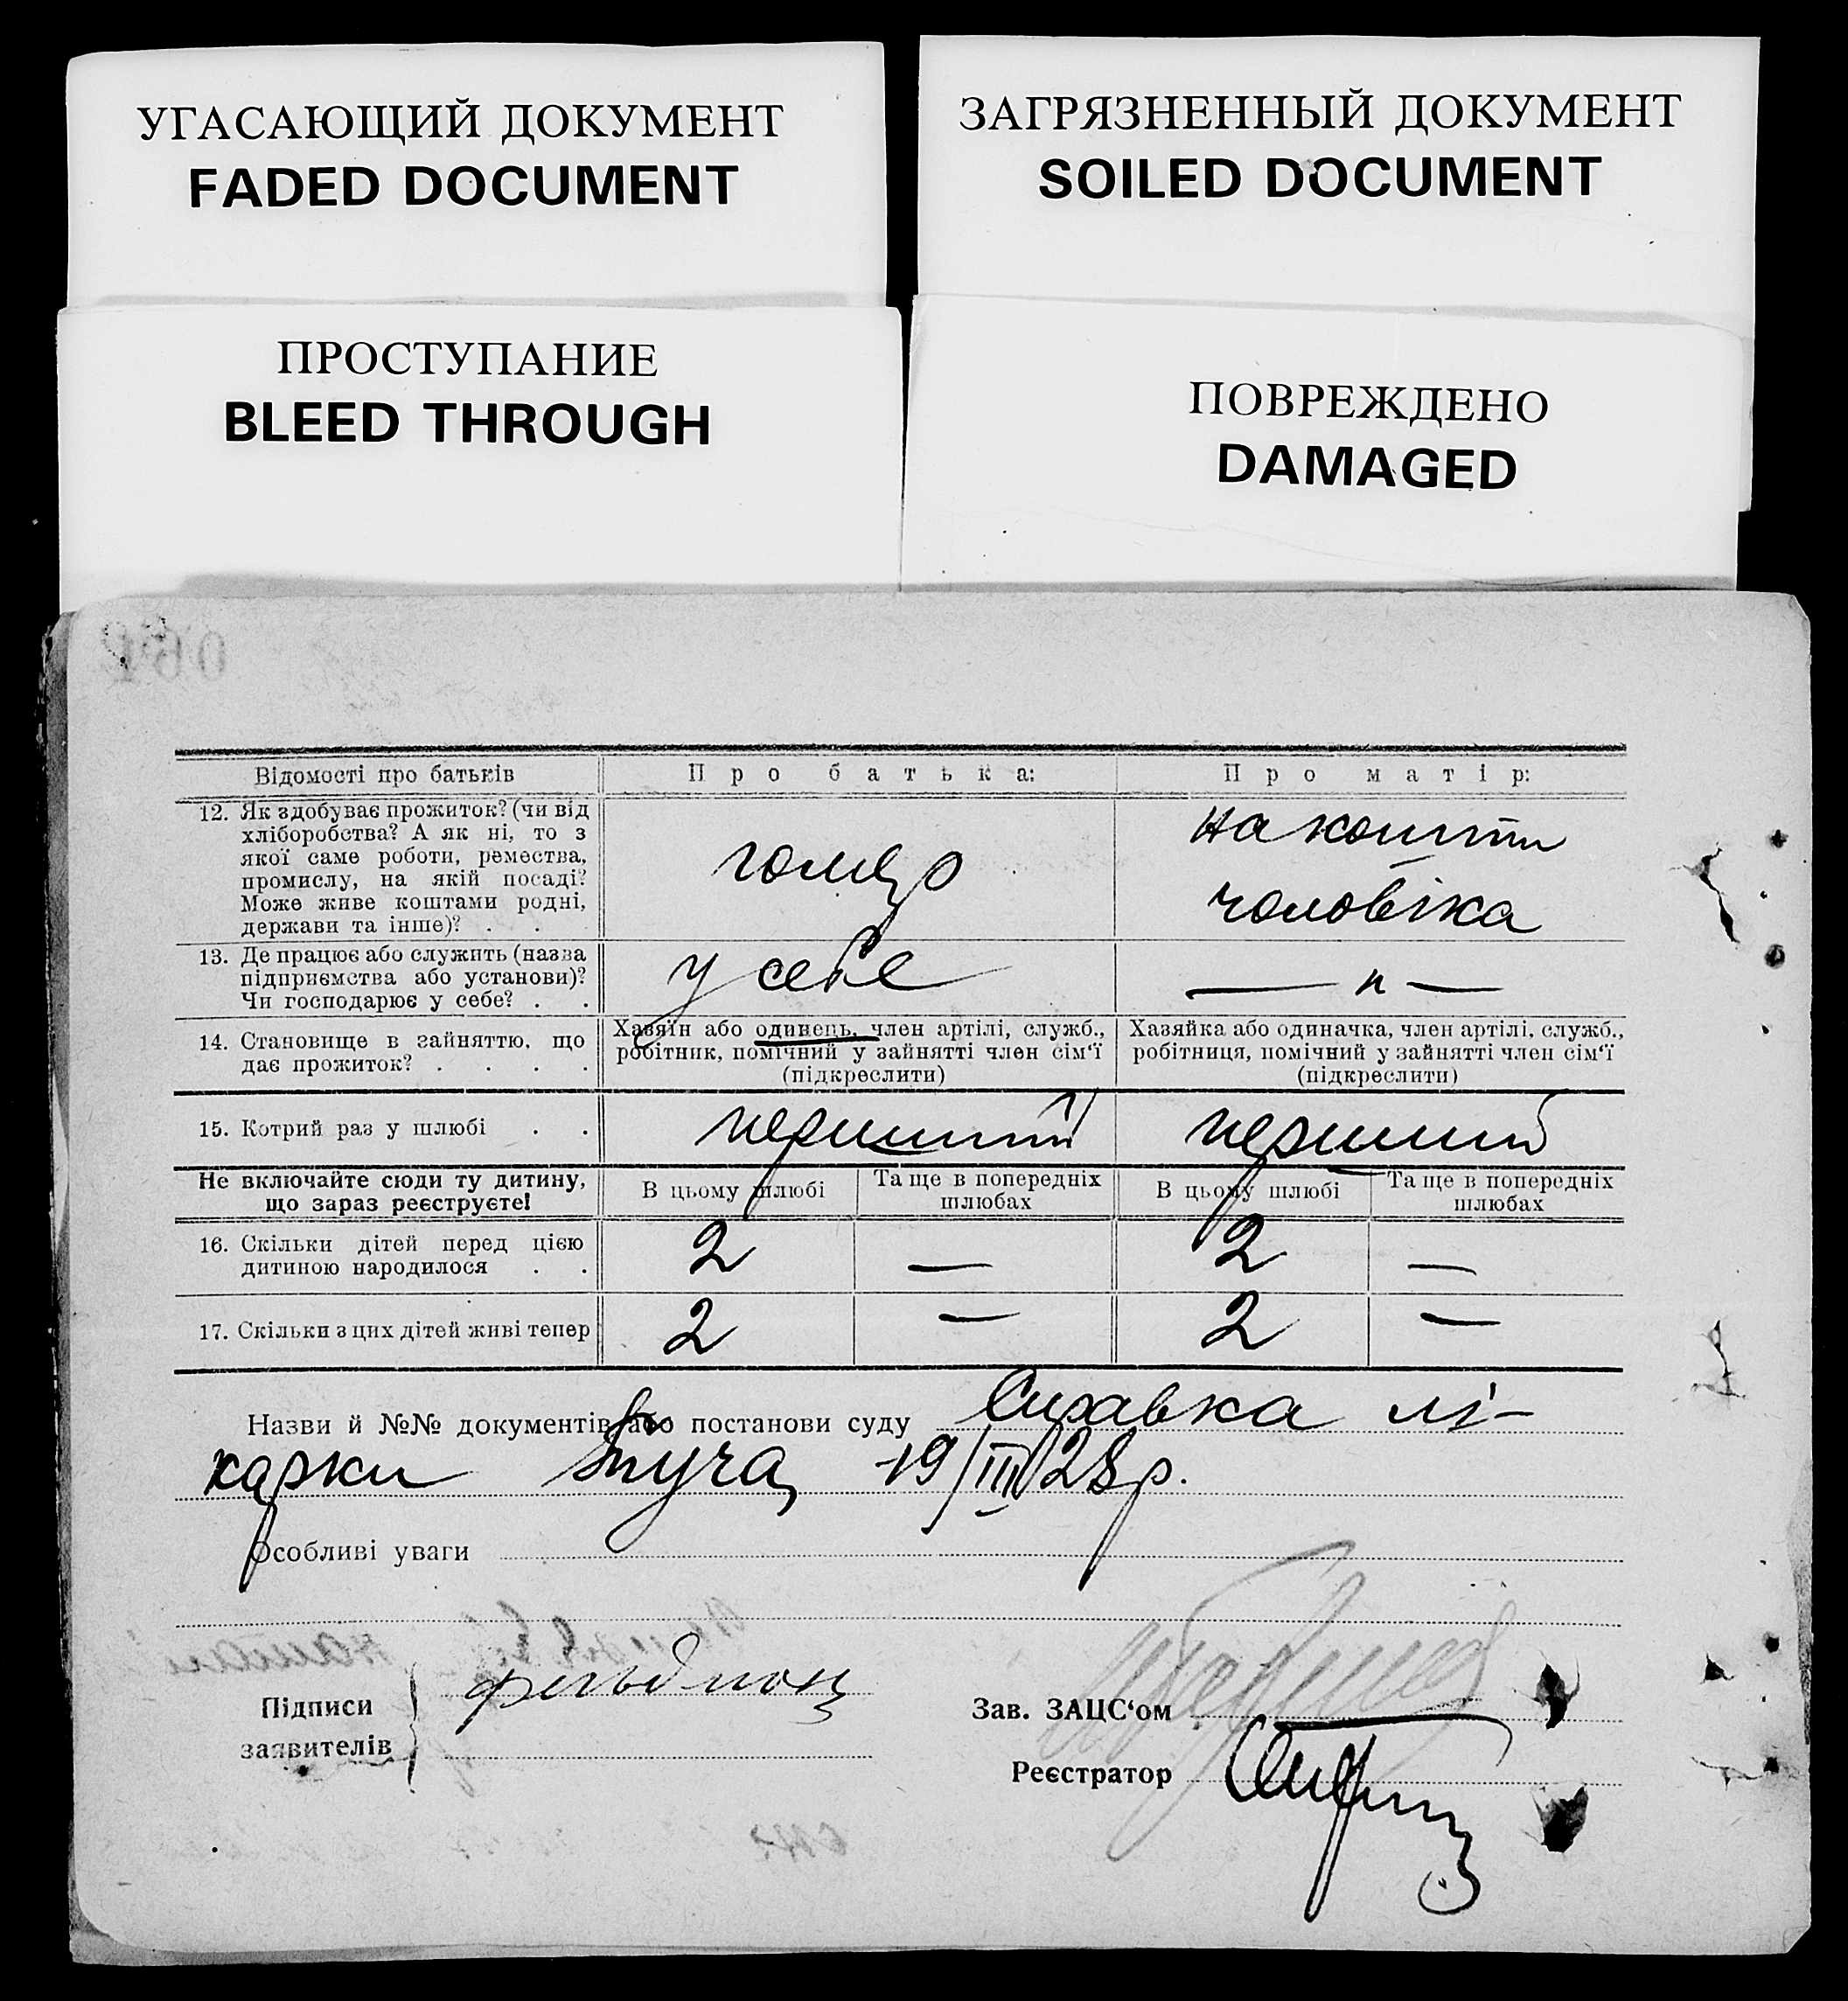 УГАСАЮЩИЙ ДОКУМЕНТ
FADED DOCUMENT
ЗАГРЯЗНЕННЫЙ ДОКУМЕНТ
SOILED DOCUMENT
ПРОСТУПАНИЕ
BLEED THROUGH
ПОВРЕЖДЕНО
DAMAGED
Відомості про батьків
Про батька:
Про матір:
12. Як здобуває прожиток? (чи від
хліборобства? А як ні, то з
якої саме роботи, ремества,
промислу, на якій посаді?
Може живе коштами родні,
держави та інше)? . .
голяр
на кошти
чоловіка
13. Де працює або служить (назва
підприємства або установи)?
Чи господарює у себе? . .
у себе
— " —
14. Становище в зайняттю, що
дає прожиток? . . . .
Хазяїн або одинець, член артілі, служб.,
робітник, помічний у зайнятті член сім'ї
(підкреслити)
Хазяйка або одиначка, член артілі, служб.,
робітниця, помічний у зайнятті член сім'ї
(підкреслити)
15. Котрий раз у шлюбі . .
перший
перший
Не включайте сюди ту дитину,
що зараз реєструєте!
В цьому шлюбі
Та ще в попередніх
шлюбах
В цьому шлюбі
Та ще в попередніх
шлюбах
16. Скільки дітей перед цією
дитиною народилося . .
2 — 2 —
17. Скільки з цих дітей живі тепер
2 — 2 —
Назви й №№ документів або постанови суду Справка лі-
карки 19/III 28 р.
Особливі уваги
Підписи
заявителів
фельдман
Зав. ЗАЦС'ом
Реєстратор